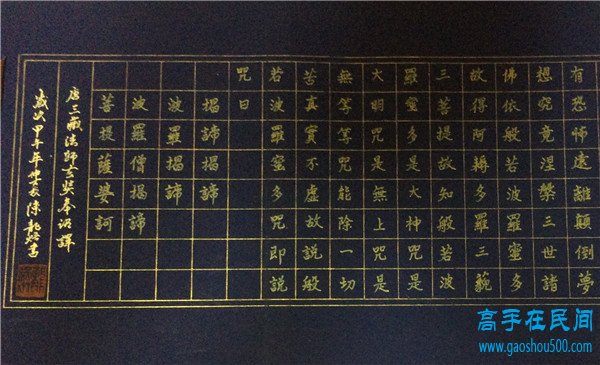 有恐怖遠離顛倒夢
想究竟涅槃三世諸
佛依般若波羅蜜多
故得阿耨多羅三藐
三菩提故知般若波
羅蜜多是大神咒是
大明咒是無上咒是
無等等咒能除一切
苦真實不虛故說般
若波羅蜜多咒即說
咒曰
揭諦揭諦
波羅揭諦
波羅僧揭諦
菩提薩婆訶
唐三藏法師玄奘奉詔譯
歲次甲午年仲夏陳書
高手在民间
www.gaoshou500.com